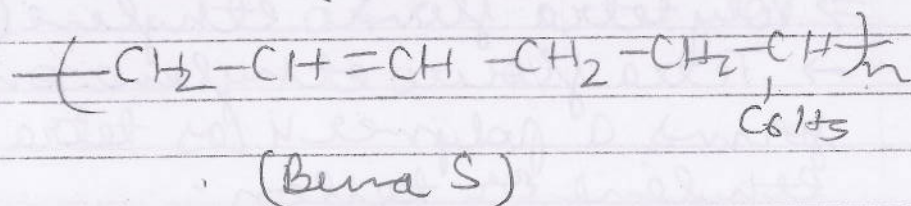 -(CH2-CH=CH-CH2-CH2-CH)n
C6H5
(Buna S)